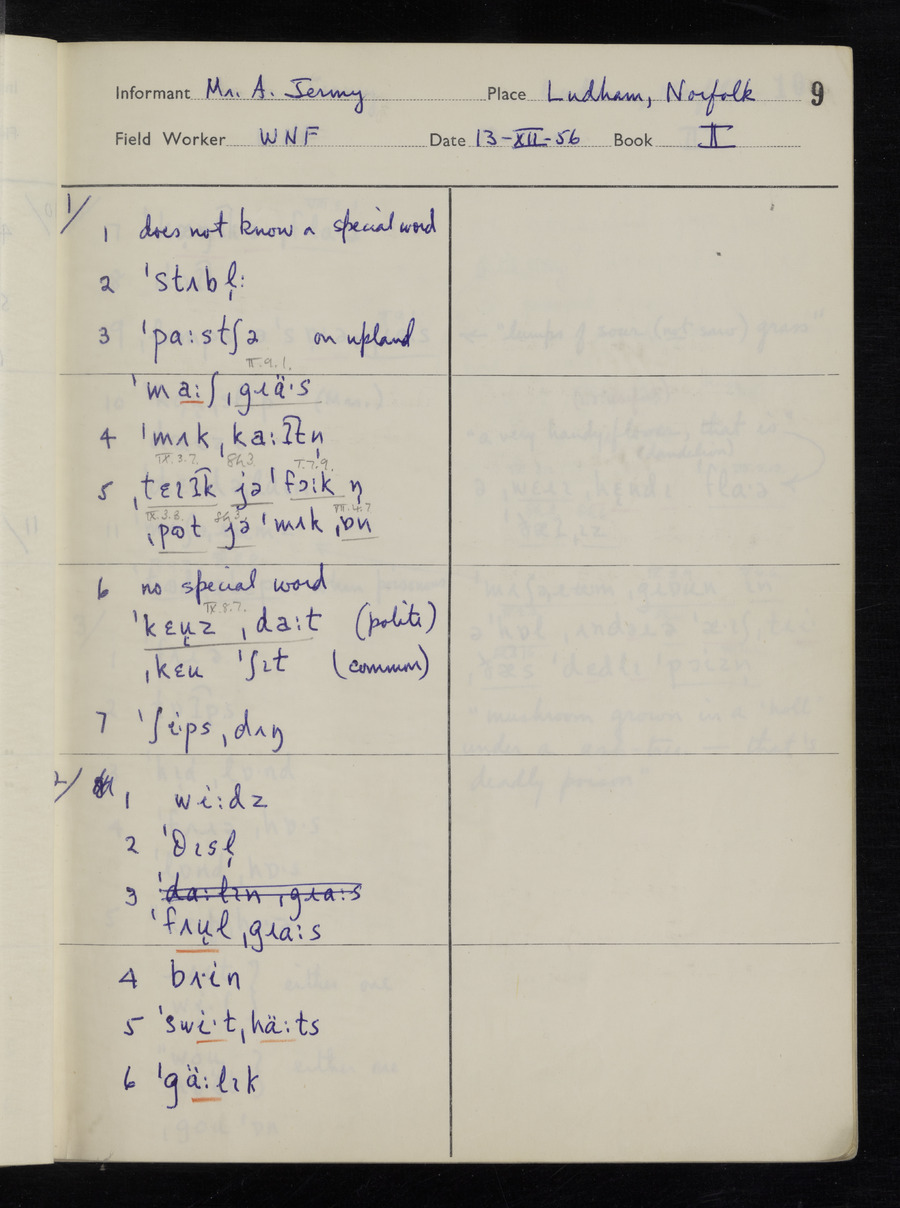 Informant Mr. A. Jermy Place Ludham, Norfolk 9
Field Worker WNF Date 13-XII-56 Book II
1/
1 does not know a special word
2 ˈstʌbl̩:
3 ˈpa:stʃə on upland
II.9.1.
ˈma:ʃˌgɹä·s
4 ˈmʌkˌka:ʔtn̩
IX.3.7. 8h3. I.7.9.
5 ˌtɛɪʔk jə ˈfɔɪk n̩
IX.3.3. 8h3. VII.4.7
ˌpɒt jə ˈmʌk ˌɒn
6 no special word
IX.8.7.
ˈkɛu̜z ˌda:t (polite)
ˌkɛu ˈʃɪt (common)
7 ˈʃi·psˌdʌŋ
2/
1 wi:dz
2 ˈθɪsl̩
3 ˈda:lɪn ˌgɹa:s
ˈfʌu̜lˌgɹa:s
4 bɹɪn
5 ˈswi·tˌhä:ts
6 ˈgä:lɪk